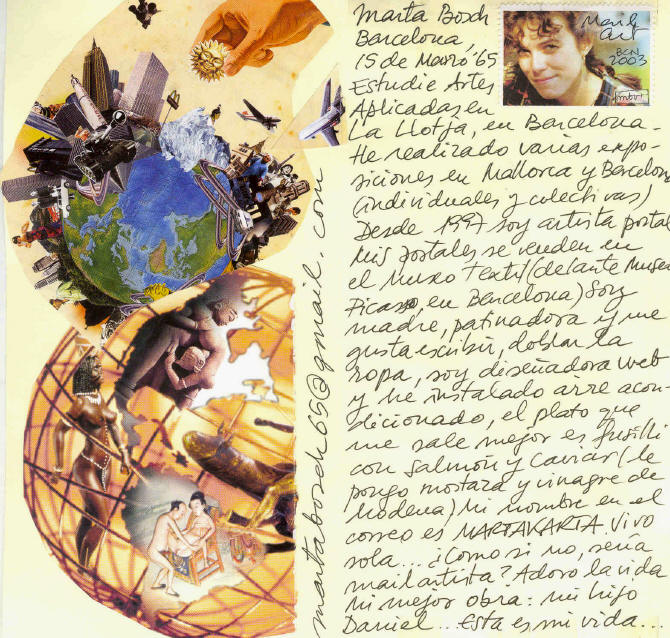 Marta Bosch
Barcelona,
15 de Marzo '65
Estudie Artes
Aplicadas en
La Llotja, en Barcelona.
He realizado varias expo-
siciones en Mallorca y Barcelona
(individuales y colectivas)
Desde 1997 soy artista postal
Mis postales se venden en
el museo Textil (delante Museo
Picasso, en Barcelona) Soy
madre, patinadora y me
gusta escribir, doblar la
ropa, soy diseñadora web
y he instalado aire acon-
dicionado, el plato que
me sale mejor es fusilli
con salmón y caviar (le
pongo mostaza y vinagre de
Modena) Mi nombre en el
correo es MARTAKARTA. Vivo
sola... ¿Como si no, sería
mailartista? Adoro la vida
Mi mejor obra: mi hijo
Daniel... Esta es mi vida...
Mail
art
BCN
2003
martabosch65@gmail.com